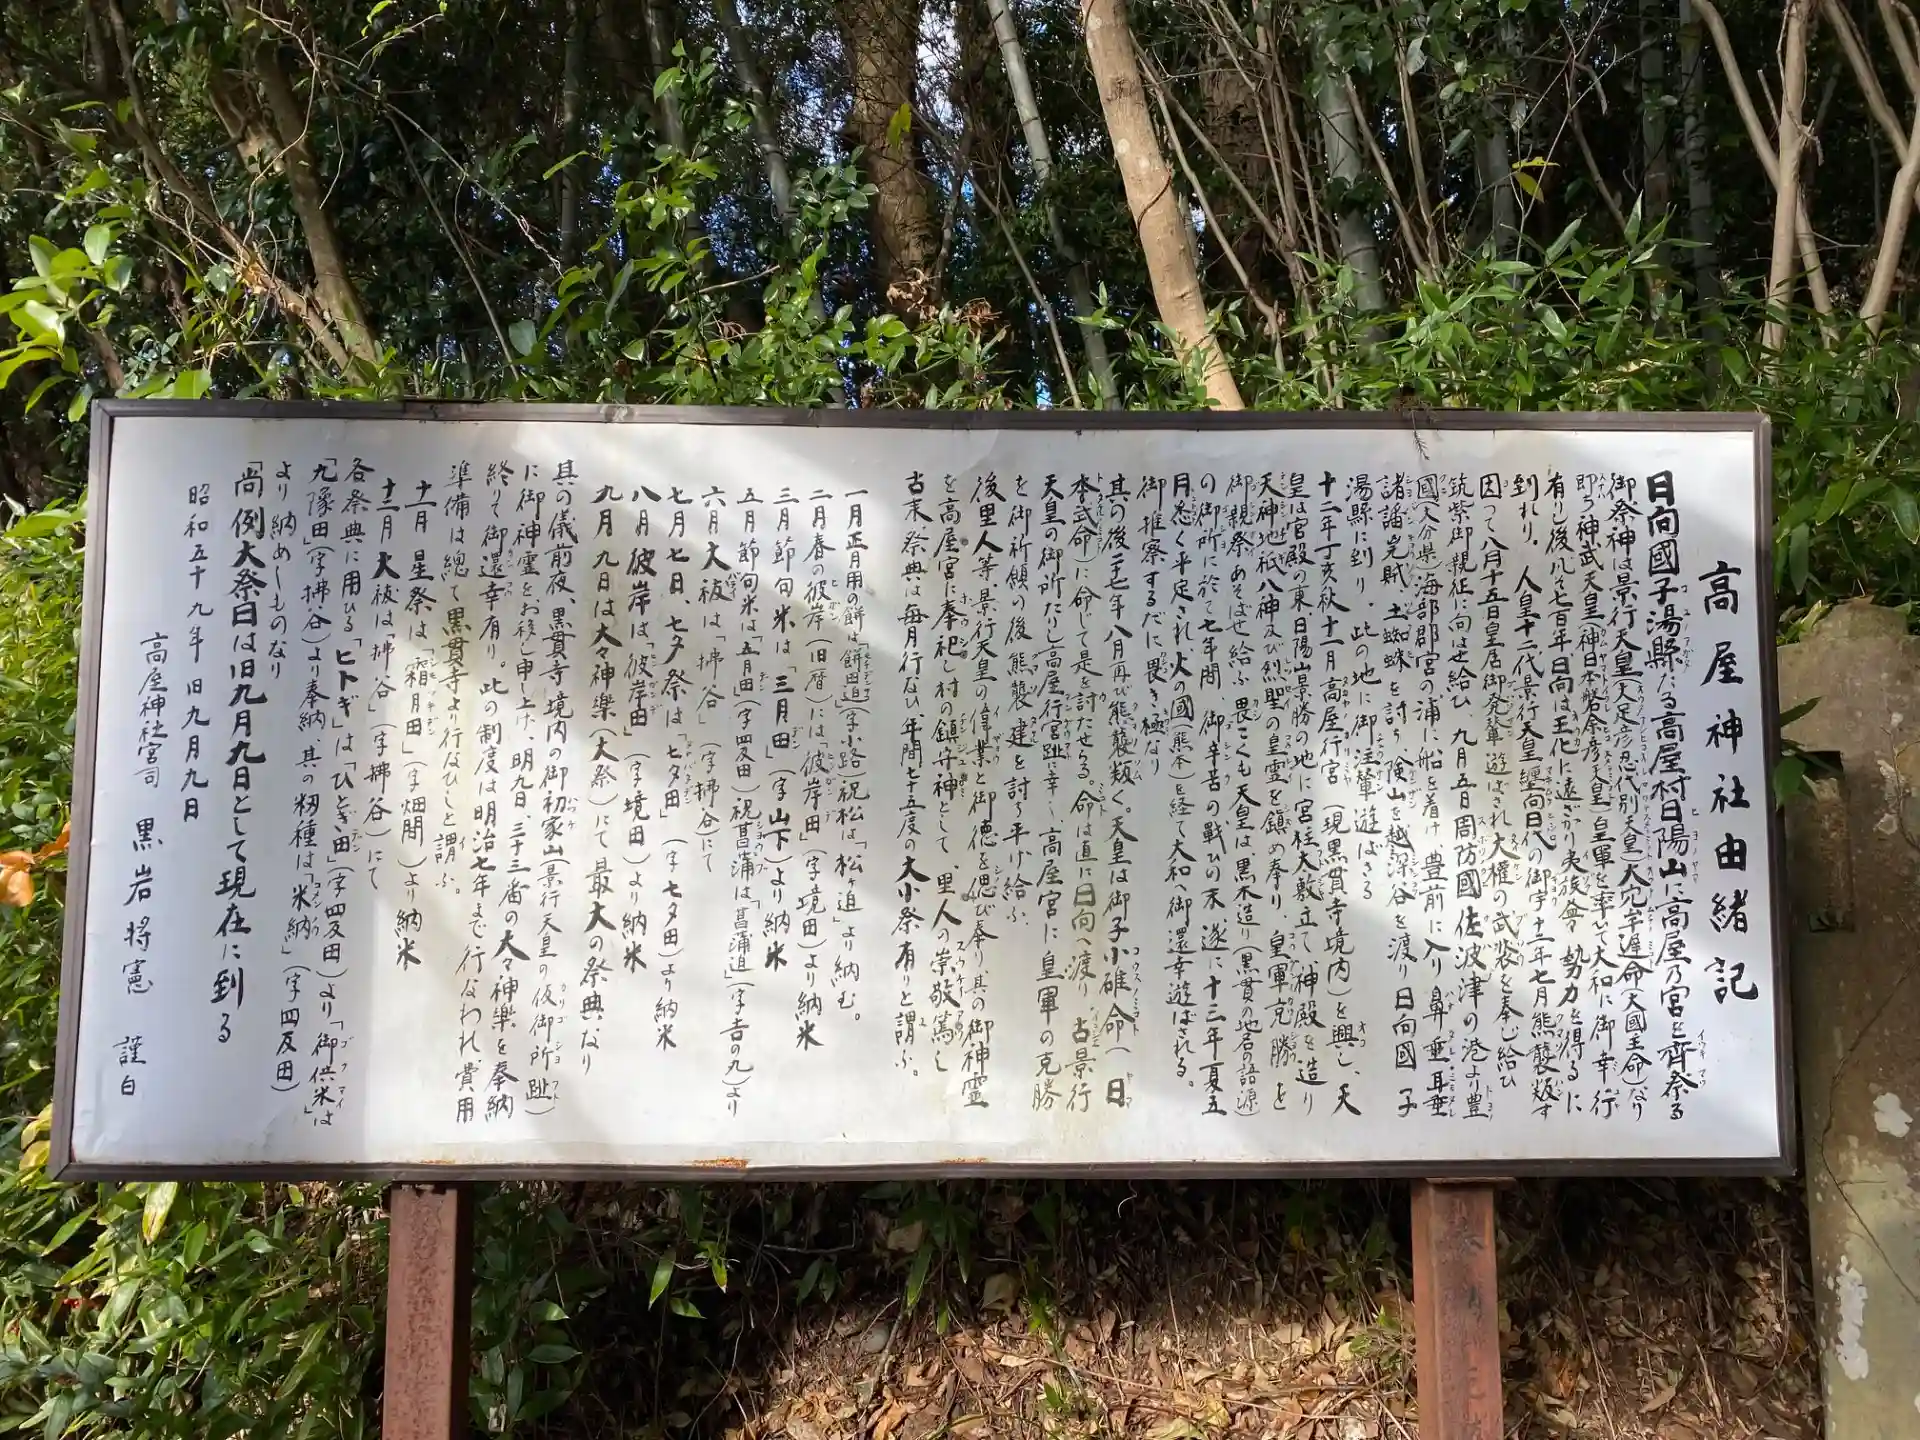 高屋神社由緒記
日向國子湯縣たる高屋村日陽山に高屋乃宮を齊祭る
御祭神は景行天皇(大足彦忍代別天皇)大穴牟遲命(大國主命)なり
即ち神武天皇(神日本磐余彦天皇)皇軍を率いて大和に御幸行
有りし後凡そ七百年日向は王化に遠ざかり夷族會々勢力を得るに
到れり。人皇十二代景行天皇纏向日代の御宇十二年七月熊襲叛す
因って八月十五日皇居御発輦遊ばされ大權の武装を奉じ給ひ
筑紫御親征に向はせ給ひ、九月五日周防國佐波津の港より豊
國(大分県)海部郡宮の浦に船を着け、豊前に入り鼻垂耳垂
諸譒兇賊、土蜘蛛を討ち、険山を越へ深谷を渡り日向國子
湯縣に到り、此の地に御注輦遊ばさる
十二年丁亥秋十一月高屋行宮(現黒貫寺境内)を興し、天
皇は宮殿の東日陽山景勝の地に宮柱大敷立て、神殿を造り
天神地祇八神及び列聖の皇霊を鎮め奉り、皇軍克勝を
御親祭あそばせ給ふ畏こくも天皇は黒木造り(黒貫の地名の語源)
の御所に於て七年間、御辛苦の戰ひの末、遂に十三年夏五
月悉く平定され、火の國(熊本)を経て大和へ御還幸遊ばされる。
御推察するだに畏き極なり
其の後二十七年八月再び熊襲叛く。天皇は御子小碓命(日
本武命)に命じて是を討たせらる。命は直に日向へ渡り、古景行
天皇の御所たりし高屋行宮趾に幸し、高屋宮に皇軍の克勝
を御祈願の後熊襲建を討ち平げ給ふ。
後里人等、景行天皇の偉業と御徳を偲び奉り其の御神霊
を高屋宮に奉祀し村の鎮守神として、里人の崇敬篤し
古来祭典は毎月行ない年間七十五度の大小祭有りと謂ふ。
一月正月用の餅は「餅田迫」(字小路)祝松は「松ヶ迫」より納む。
二月春の彼岸(旧暦)には「彼岸田」(字境田)より納米
三月節句米は「三月田」(字山下)より納米
五月節句米は「五月田」(字四反田)祝菖蒲は「菖蒲迫」(字吉の九)より
六月大祓は「拂谷」(字拂谷)にて
七月七日、七夕祭は「七夕田」(字七夕田)より納米
八月彼岸は「彼岸田」(字境田)より納米
九月九日は大々神樂(大祭)にて最大の祭典なり
其の儀前夜、黒貫寺境内の御初家山(景行天皇の仮御所趾)
に御神霊をお移し申し上げ、明九日、三十三番の大々神樂を奉納
終りて御還幸有り。此の制度は明治七年まで行なわれ、費用
準備は總て黒貫寺より行なひしと謂ふ。
十一月 星祭は「霜月田」(字畑間)より納米
十二月 大祓は「拂谷」(字拂谷)にて
各祭典に用ひる「ヒトギ」は「ひとぎ田」(字四反田)より「御供米」は
「九豫田」(字拂谷)より奉納、其の籾種は「米納」(字四反田)
より納めしものなり
「尚例大祭日は旧九月九日として現在に到る
昭和五十九年旧九月九日
高屋神社宮司 黒岩将憲 謹白